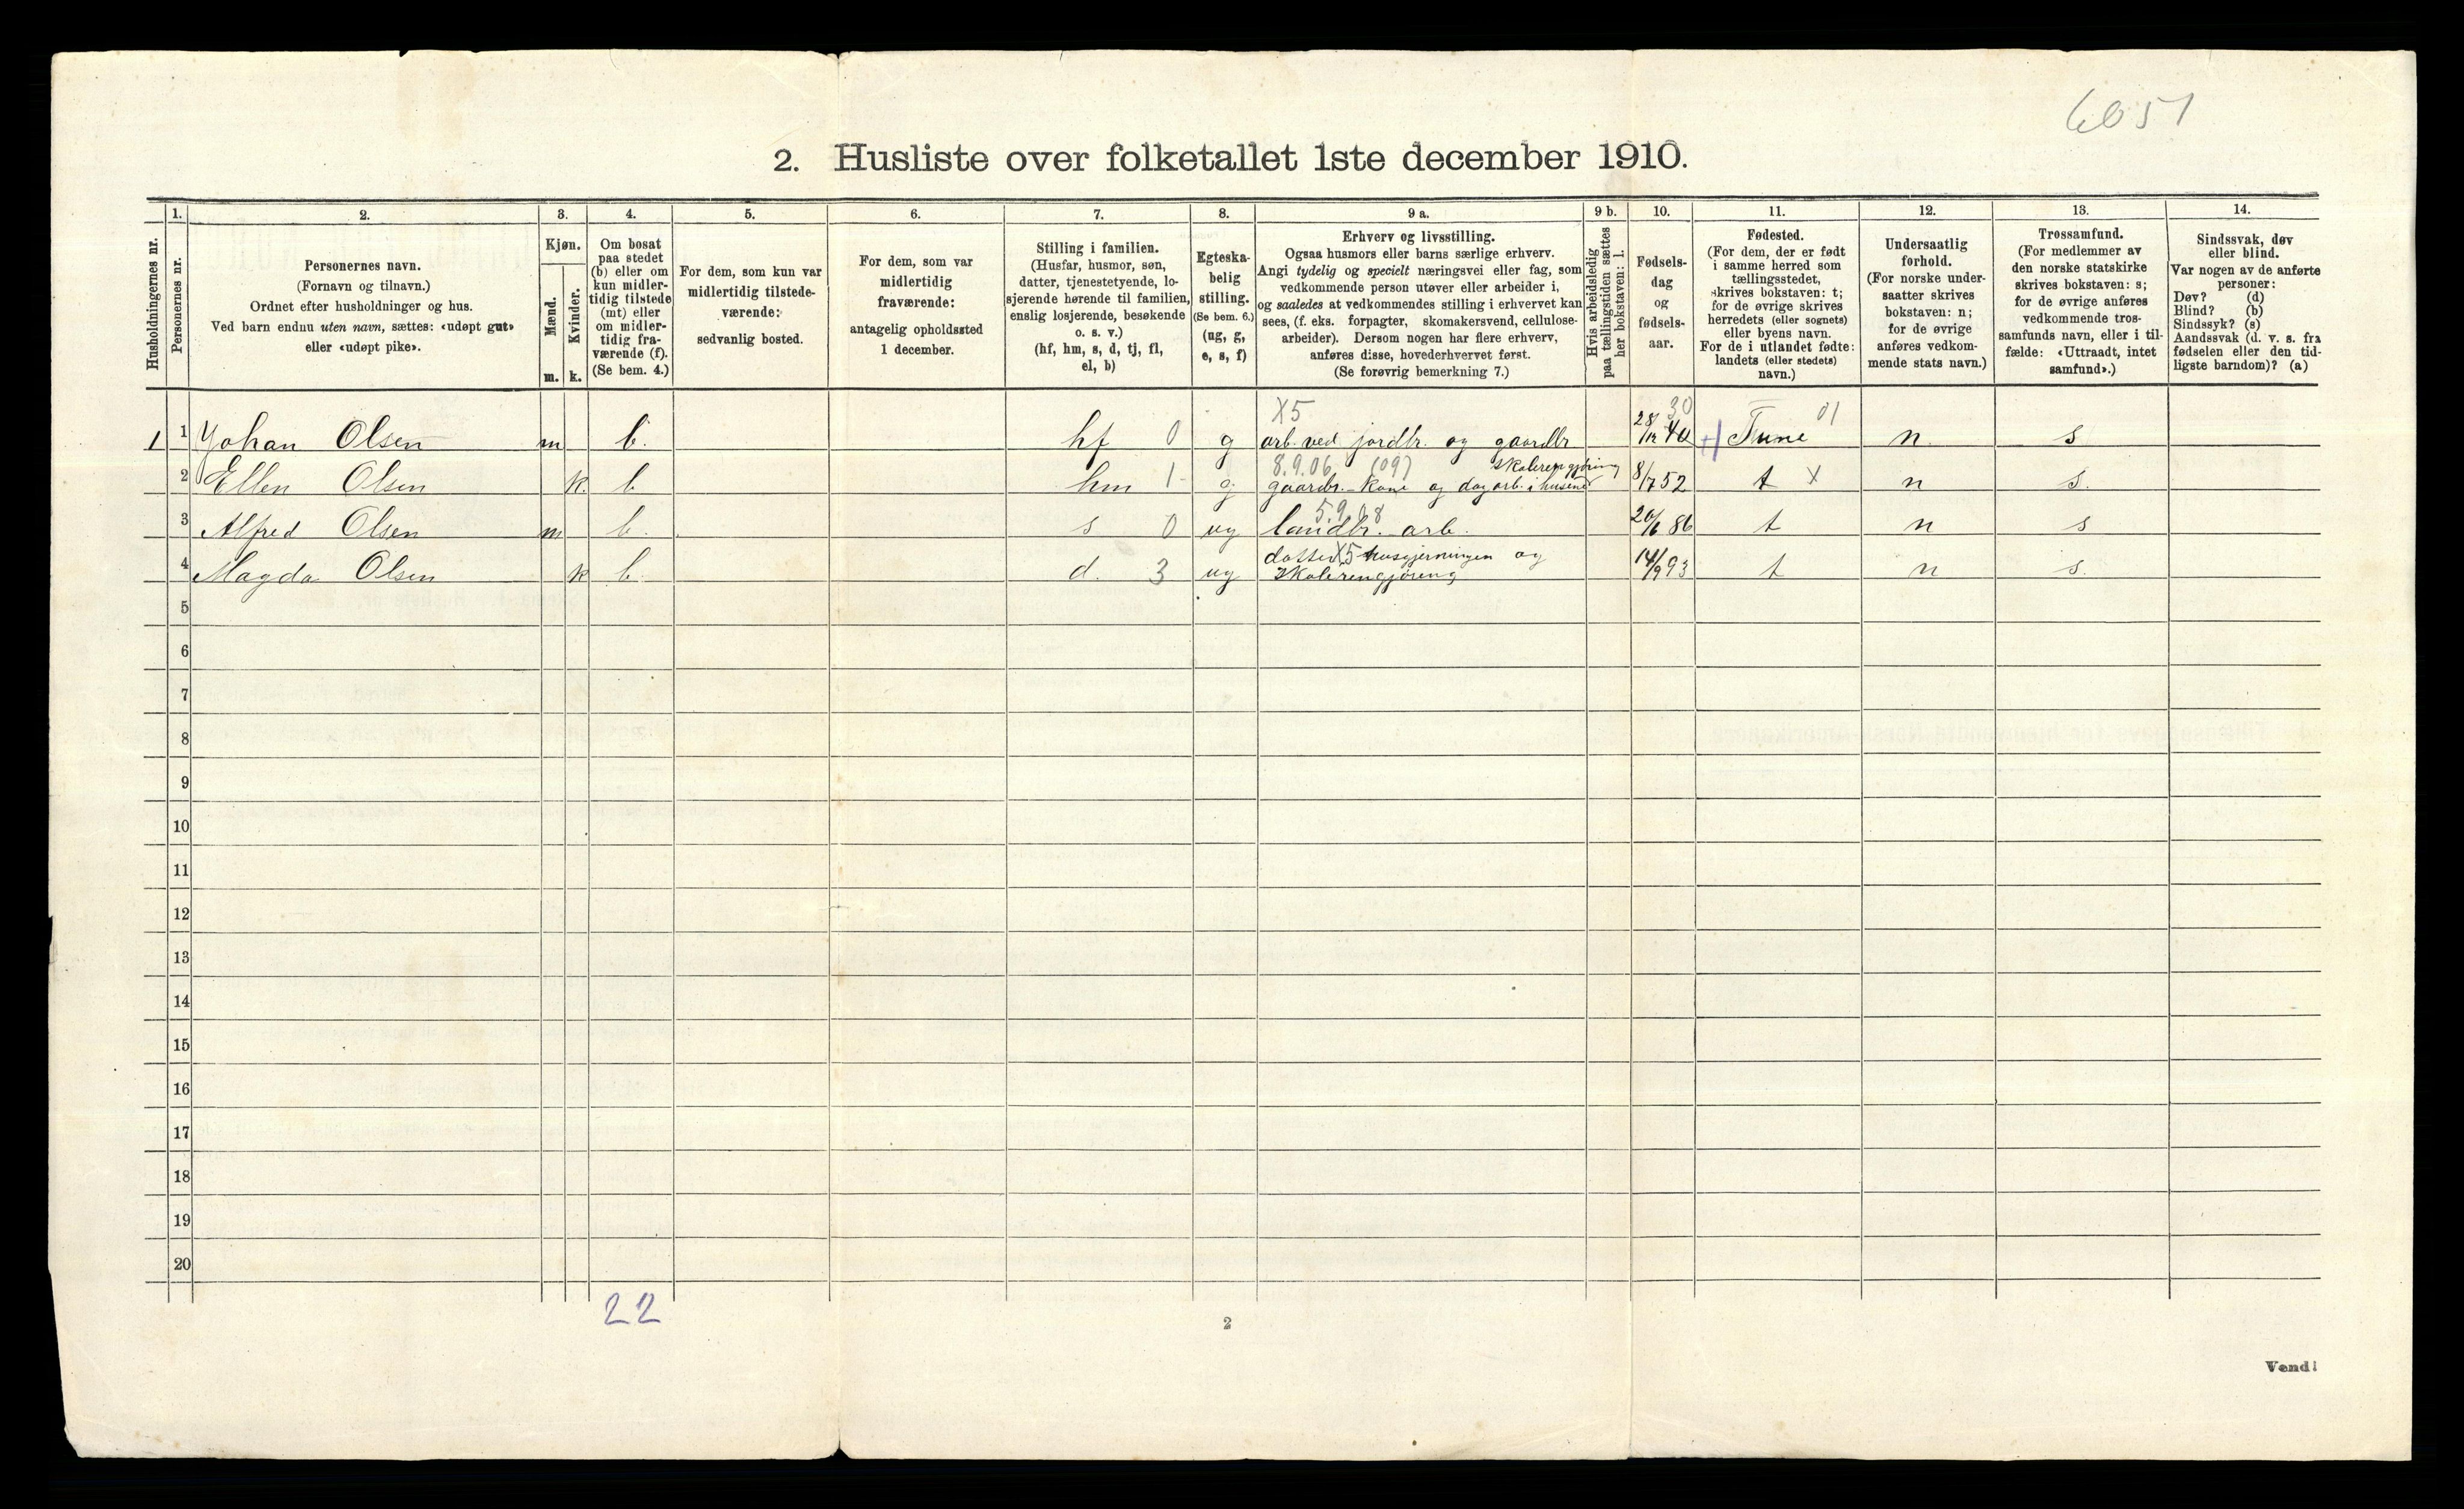 6051
2. Husliste over folketallet 1ste december 1910.
Husholdningernes nr.
1. Personernes nr.
2. Personernes navn.
(Fornavn og tilnavn.)
Ordnet efter husholdninger og hus.
Ved barn endnu uten navn, sættes: «udøpt gut»
eller «udøpt pike».
3. Kjøn.
Mænd. m.
Kvinder. k.
4. Om bosat
paa stedet
(b) eller om
kun midler-
tidig tilstede
(mt) eller
om midler-
tidig fra-
værende (f).
(Se bem. 4.)
5. For dem, som kun var
midlertidig tilstede-
værende:
sedvanlig bosted.
6. For dem, som var
midlertidig
fraværende:
antagelig opholdssted
1 december.
7. Stilling i familien.
(Husfar, husmor, søn,
datter, tjenestetyende, lo-
sjerende hørende til familien,
enslig losjerende, besøkende
o. s. v.)
(hf, hm, s, d, tj, fl,
el, b)
8. Egteska-
belig
stilling.
(Se bem. 6.)
(ug, g,
e, s, f)
9 a. Erhverv og livsstilling.
Ogsaa husmors eller barns særlige erhverv.
Angi tydelig og specielt næringsvei eller fag, som
vedkommende person utøver eller arbeider i,
og saaledes at vedkommendes stilling i erhvervet kan
sees, (f. eks. forpagter, skomakersvend, cellulose-
arbeider). Dersom nogen har flere erhverv,
anføres disse, hovederhvervet først.
(Se forøvrig bemerkning 7.)
9 b. Hvis arbeidsledig
paa tællingstiden sættes
her bokstaven: l.
10. Fødsels-
dag
og
fødsels-
aar.
11. Fødested.
(For dem, der er født
i samme herred som
tællingsstedet,
skrives bokstaven: t;
for de øvrige skrives
herredets (eller sognets)
eller byens navn.
For de i utlandet fødte:
landets (eller stedets)
navn.)
12. Undersaatlig
forhold.
(For norske under-
saatter skrives
bokstaven: n;
for de øvrige
anføres vedkom-
mende stats navn.)
13. Trossamfund.
(For medlemmer av
den norske statskirke
skrives bokstaven: s;
for de øvrige anføres
vedkommende tros-
samfunds navn, eller i til-
fælde: «Uttraadt, intet
samfund».)
14. Sindssvak, døv
eller blind.
Var nogen av de anførte
personer:
Døv? (d)
Blind? (b)
Sindssyk? (s)
Aandssvak (d. v. s. fra
fødselen eller den tid-
ligste barndom)? (a)
X5 30 01
1 1 Johan Olsen m b. hf 0 g arb. ved jordbr. og gaardbr 28/12 40 Tune n. s
8.9.06 (09) Skolerengjøring
2 Ellen Olsen k. b hm 1 g gaardbr. kone og dagarb. i husene 8/7 52 t X n s.
5.9.08
3 Alfred Olsen m b. s 0 ug landbr. arb. 20/6 86 t n s
datter X5 husgjerningen og
4 Magda Olsen k b. d. 3 ug Skolerengjøreng 14/9 93 t n s.
5
6
7
8
9
10
11
12
13
14
15
16
17
18
19
20
22
2
Vend!